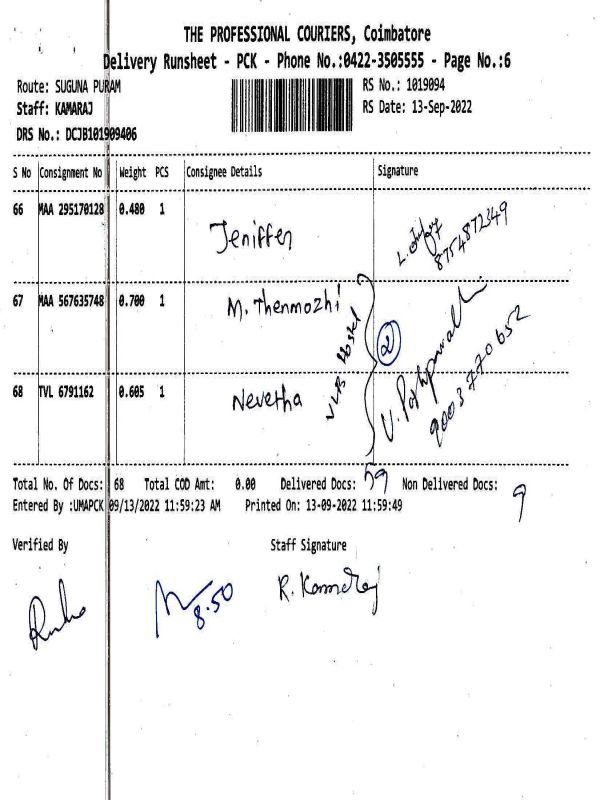 THE PROFESSIONAL COURIERS, Coimbatore
Delivery Runsheet - PCK - Phone No.:0422-3505555 - Page No.:6
Route: SUGUNA PURAM RS No.: 1019094
Staff: KAMARAJ RS Date: 13-Sep-2022
DRS No.: DCJB101909406
S No Consignment No Weight PCS Consignee Details Signature
66 MAA 295170128 0.480 1 Jeniffer 8754872349
67 MAA 567635748 0.700 1 M. Thenmozhi
VLB Hostel 2
68 TVL 6791162 0.605 1 Nevetha 9003770652
Total No. Of Docs: 68 Total COD Amt: 0.00 Delivered Docs: 59 Non Delivered Docs: 9
Entered By :UMAPCK 09/13/2022 11:59:23 AM Printed On: 13-09-2022 11:59:49
Verified By Staff Signature
8.50 R. Kamaraj